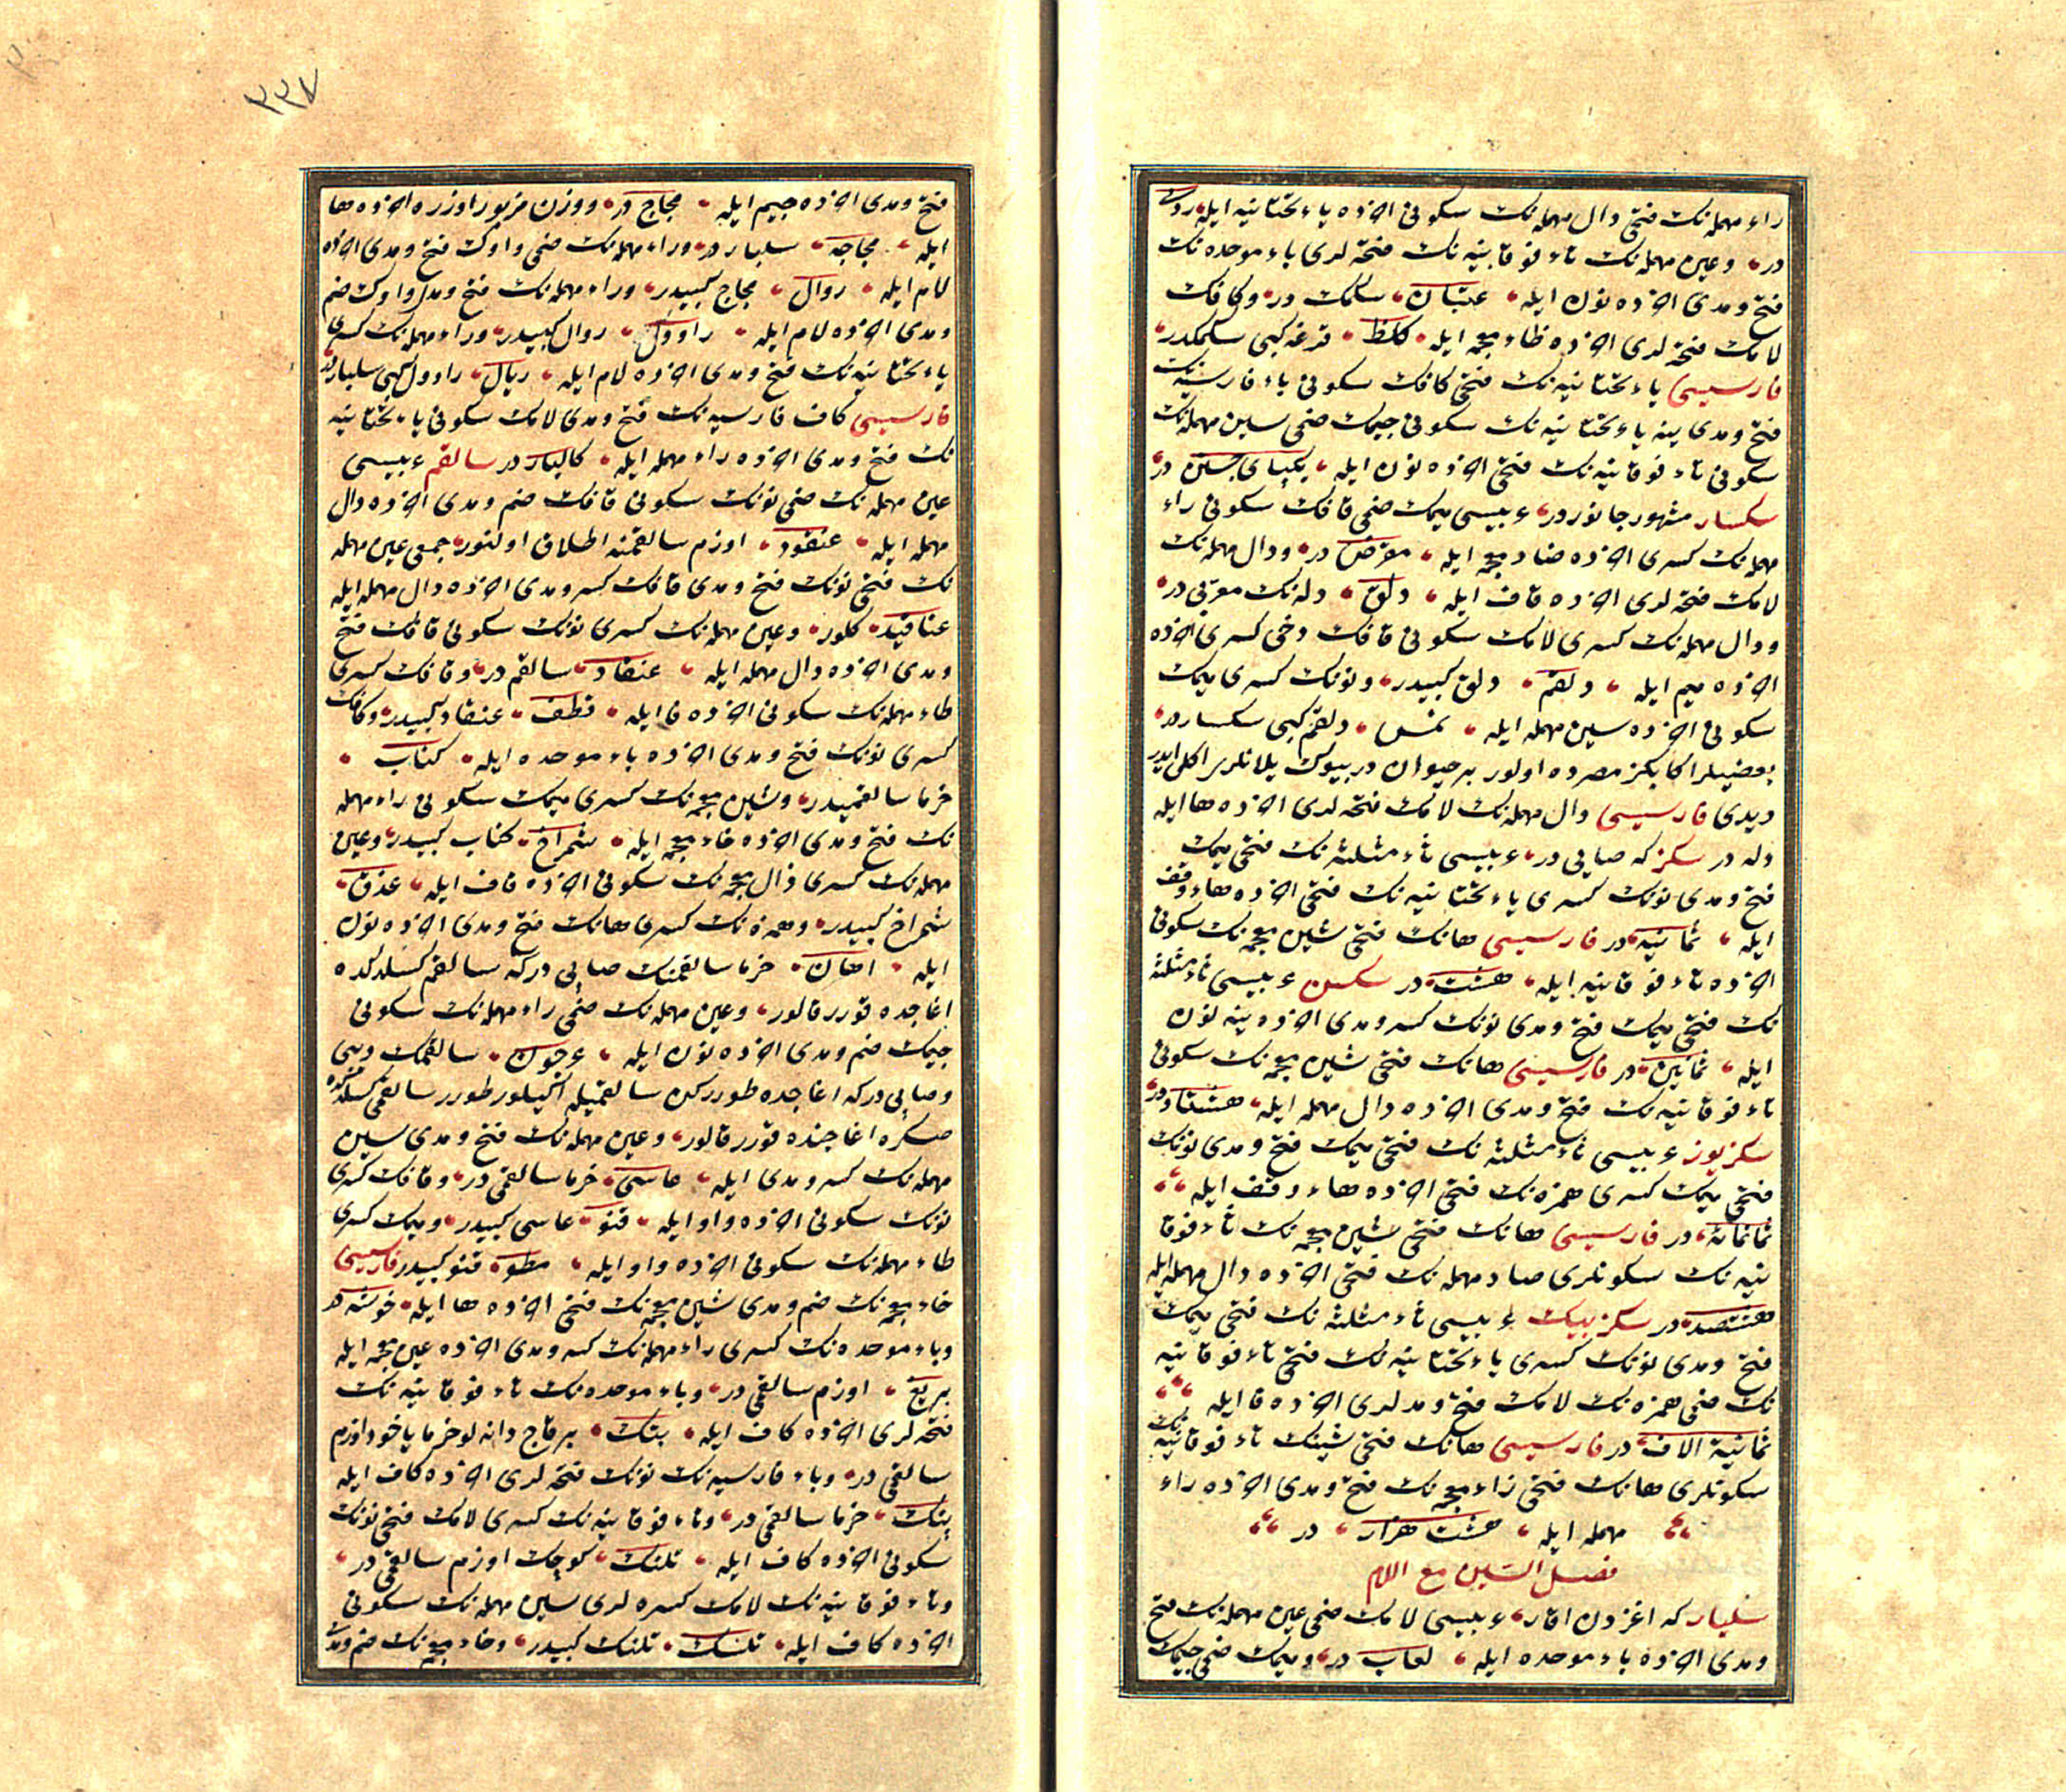 راء مهمله‌نك فتحى دال مهمله‌نك سكونى اخرده ياء تحتانيه ايله ردى
در وعين مهمله‌نك تاء فوقانيه‌نك فتحه‌لرى باء موحده‌نك
فتح ومدى اخرده نون ايله عتبان سكمك در وكافك
لامك فتحه‌لرى اخرده ظاء معجمه ايله كلظ قرغه كبى سكمكدر
فارسيسى ياء تحتانيه‌نك فتحى كافك سكونى باء فارسيه‌نك
فتح ومدى ينه ياء تحتانيه‌نك سكونى جيمك ضمى سين مهمله‌نك
سكونى تاء فوقانيه‌نك فتحى اخرده نون ايله يكپاى جستن در
سكسار مشهور جانوردر عربيسى ميمك ضمى قافك سكونى راء
مهمله‌نك كسرى اخرده ضاد معجمه ايله مقرض در ودال مهمله‌نك
لامك فتحه‌لرى اخرده قاف ايله دلق دله‌نك معربى در
ودال مهمله‌نك كسرى لامك سكونى قافك دخى كسرى اخرده
اخرده ميم ايله دلقم دلق كبيدر ونونك كسرى ميمك
سكونى اخرده سين مهمله ايله نمس دلقم كبى سكساردر
بعضيلر اكا بكزر مصرده اولور بر حيوان در بيوك يلانلرى اكل ايدر
ديدى فارسيسى دال مهمله‌نك لامك فتحه‌لرى اخرده ها ايله
دله در سكز كه صايى در عربيسى ثاء مثلثه‌نك فتحى ميمك
فتح ومدى نونك كسرى ياء تحتانيه‌نك فتحى اخرده هاء وقف
ايله ثمانيه در فارسيسى هانك فتحى شين معجمه‌نك سكونى
اخرده تاء فوقانيه ايله هشت در سكسن عربيسى ثاء مثلثه
نك فتحى ميمك فتح ومدى نونك كسر ومدى اخرده ينه نون
ايله ثمانين در فارسيسى هانك فتحى شين معجمه‌نك سكونى
تاء فوقانيه‌نك فتح ومدى اخرده دال مهمله ايله هشتاد در
سكزيوز عربيسى ثاء مثلثه‌نك فتحى ميمك فتح ومدى نونك
فتحى ميمك كسرى همزه‌نك فتحى اخرده هاء وقف ايله
ثمانمائه در فارسيسى هانك فتحى شين معجمه‌نك تاء فوقا
نيه‌نك سكونلرى صاد مهمله‌نك فتحى اخرده دال مهمله ايله
هشتصد در سكزبيك عربيسى ثاء مثلثه‌نك فتحى ميمك
فتح ومدى نونك كسرى ياء تحتانيه‌نك فتحى تاء فوقانيه
نك ضمى همزه‌نك لامك فتح ومدلرى اخرده فا ايله
ثمانية الاف در فارسيسى هانك فتحى شينك تاء فوقانيه‌نك
سكونلرى هانك فتحى زاء معجمه‌نك فتح ومدى اخرده راء
مهمله ايله هشت هزار در
فصل السين مع اللام
سليار كه اغزدن اقار عربيسى لامك ضمى عين مهمله‌نك فتح
ومدى اخرده باء موحده ايله لعاب در وميمك ضمى جيمك
فتح ومدى اخرده جيم ايله مجاج در ووزن مزبور اوزره اخرده ها
ايله مجاجه سليار در وراء مهمله‌نك ضمى واوك فتح ومدى اخرده
لام ايله روال مجاج كبيدر وراء مهمله‌نك فتح ومدى واوك ضم
ومدى اخرده لام ايله راوول روال كبيدر وراء مهمله‌نك كسرى
ياء تحتانيه‌نك فتح ومدى اخرده لام ايله ريال راوول كبى سليار در
فارسيسى كاف فارسيه‌نك فتح ومدى لامك سكونى ياء تحتانيه
نك فتح ومدى اخرده راء مهمله ايله كاليار در سالقم عربيسى
عين مهمله‌نك ضمى نونك سكونى قافك ضم ومدى اخرده دال
مهمله ايله عنقود اوزم سالقمنه اطلاق اولنور جمعى عين مهمله
نك فتحى نونك فتح ومدى قافك كسر ومدى اخرده دال مهمله ايله
عناقيد كلور وعين مهمله‌نك كسرى نونك سكونى قافك فتح
ومدى اخرده دال مهمله ايله عنقاد سالقم در وقافك كسرى
طاء مهمله‌نك سكونى اخرده فا ايله قطف عنقاد كبيدر وكافك
كسرى نونك فتح ومدى اخرده باء موحده ايله كناب
خرما سالقميدر وشين معجمه‌نك كسرى ميمك سكونى راء مهمله
نك فتح ومدى اخرده خاء معجمه ايله شمراخ كناب كبيدر وعين
مهمله‌نك كسرى ذال معجمه‌نك سكونى اخرده قاف ايله عذق
شمراخ كبيدر وهمزه‌نك كسرى هانك فتح ومدى اخرده نون
ايله اهان خرما سالقمنك صاپى در كه سالقم كسلدكده
اغاجده قورر قالور وعين مهمله‌نك ضمى راء مهمله‌نك سكونى
جيمك ضم ومدى اخرده نون ايله عرجون سالقمك ديبى
وصاپى در كه اغاجده طوررکن سالقميله اكيلور طورر سالقمى كسلدكدن
صكره اغاجنده قورر قالور وعين مهمله‌نك فتح ومدى سين
مهمله‌نك كسر ومدى ايله عاسى خرما سالقمى در وقافك كسرى
نونك سكونى اخرده واو ايله قنو عاسى كبيدر وميمك كسرى
طاء مهمله‌نك سكونى اخرده واو ايله مطو قنو كبيدر فارسيسى
خاء معجمه‌نك ضم ومدى شين معجمه‌نك فتحى اخرده ها ايله خوشه در
وباء موحده‌نك كسرى راء مهمله‌نك كسر ومدى اخرده عين معجمه ايله
بريغ اوزم سالقمى در وباء موحده‌نك تاء فوقانيه‌نك
فتحه‌لرى اخرده كاف ايله بتك بر قاج دانه‌لو خرما ياخود اوزم
سالقمى در وباء فارسيه‌نك نونك فتحه‌لرى اخرده كاف ايله
پنك خرما سالقمى در وتاء فوقانيه‌نك كسرى لامك فتحى نونك
سكونى اخرده كاف ايله تلنك كوچك اوزم سالقمى در
وتاء فوقانيه‌نك لامك كسره‌لرى سين مهمله‌نك سكونى
اخرده كاف ايله تلسك تلنك كبيدر وخاء معجمه‌نك ضم ومدى
٢٢٧